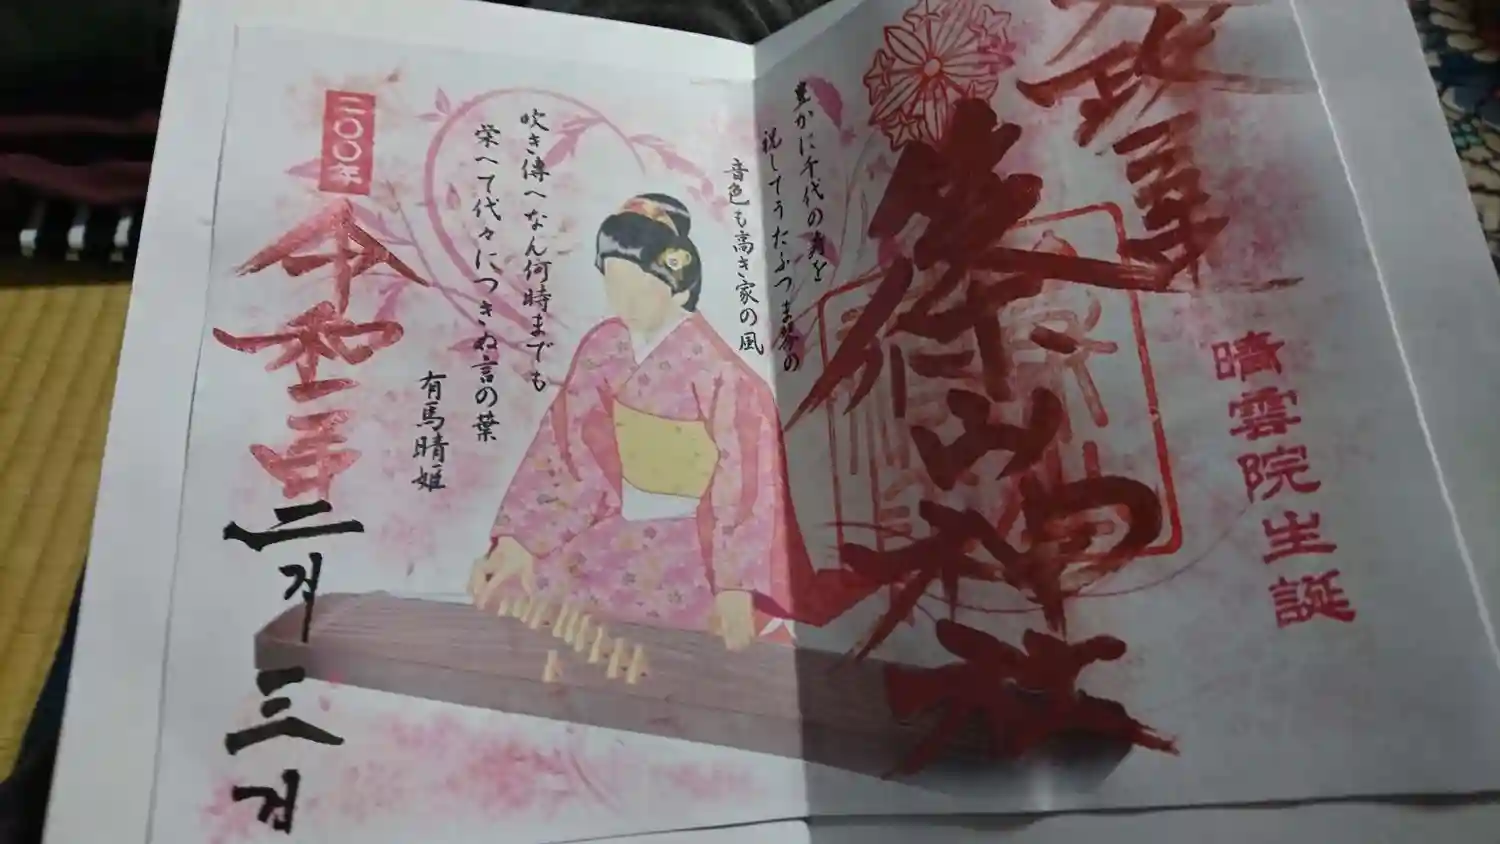 奉拝
晴雲院生誕
篠山神社
豊かに千代の寿を
祝してうたふつま琴の
音色も高き家の風
吹き傳へなん何時までも
栄へて代々につきぬ言の葉
有馬晴姫
二〇〇年
令和二年二月三日